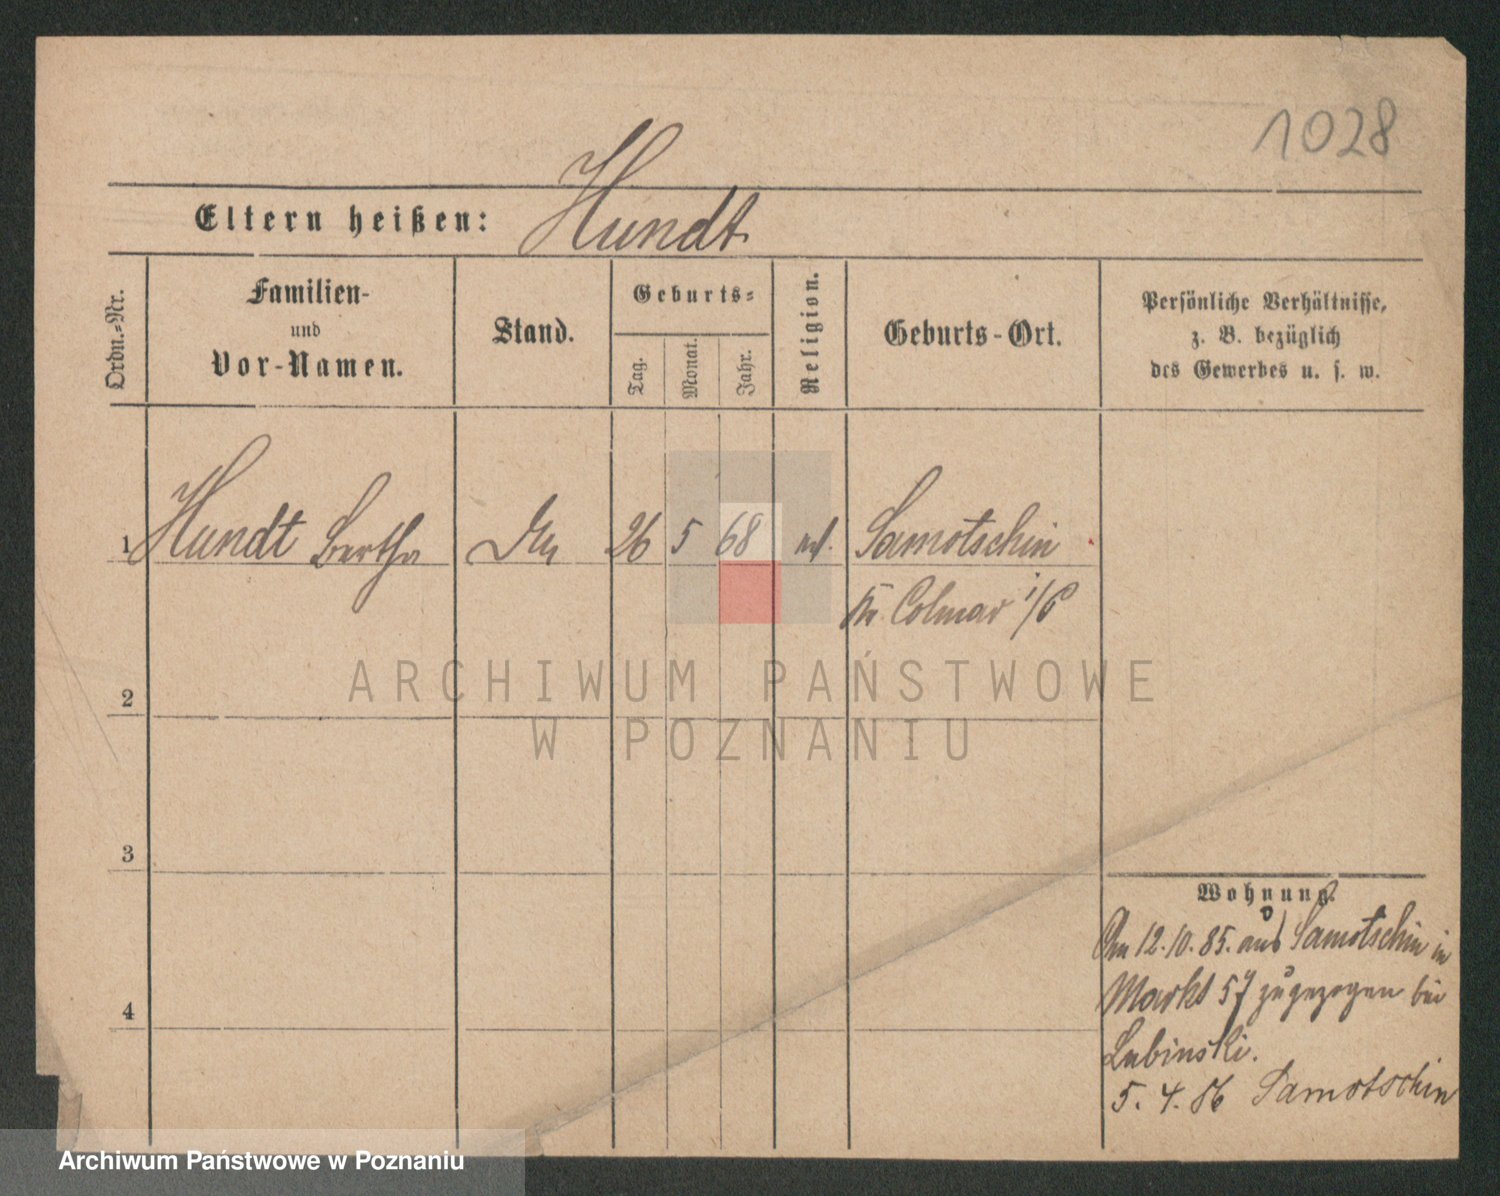 1028
Eltern heißen: Hundt
Ordn.=Nr.
Familien-
und
Vor-Namen.
Stand.
Geburts=
Tag.
Monat.
Jahr.
Religion.
Geburts-Ort.
Persönliche Verhältnisse,
z. B. bezüglich
des Gewerbes u. s. w.
1 Hundt Bertha 26 5 68 Samotschin
Kr. Colmar i/P
ARCHIWUM PAŃSTWOWE
W POZNANIU
2
3
4
Wohnung.
Am 12.10.85. aus Samotschin in
Markt 57 zugezogen bei
Lubinski.
5. 4. 86 Samotschin
Archiwum Państwowe w Poznaniu